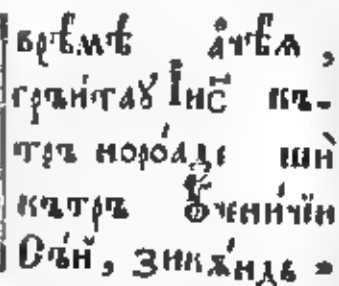 врѣмѣ а҆чѣѧ ,
гръи́таꙋ І҆ис҃ къ-
тръ норо́аде шѝ
кътръ Ꙋ҆чени́чїи
Съ́й, зикѫ́ндь *